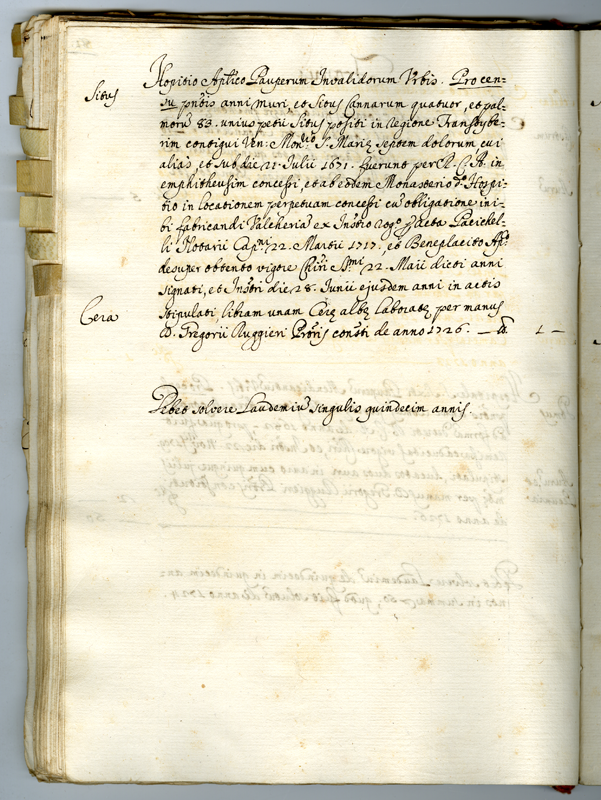 Hospitio Aplico Pauperum Invalidorum Urbis. Pro cen-
Situs
su pntis anni muri, et Situs Cannarum quatuor, et pal-
morũ 83. unius petii Situs positi in Regione Transtybe-
rim contigui Ven: Mon.rio S. Marię septem dolorum cui
aliàs, et sub die 21. Iulii 1671. fuerunt per R. C. A. in
emphitheusim concessi, et ab eodem Monasterio d.o Hospi-
tio in locationem perpetuam concessi cũ obligatione ini-
bi fabricandi Valcheria ex Instro rog.o p acta Paeichel-
li Notarii Cap.ni 22. Martii 1717., et Beneplacito Ap.
desuper obtento vigore Chiri S.mi 22. Maii dicti anni
signati, et Instri die 28. Iunii ejusdem anni in actis
stipulati libram unam Cerę albę laboratę per manus
Cera
D. Gregorii Ruggieri Proris consti de anno 1726. — 1 —
Debet solvere Laudemiũ singulis quindecim annis.